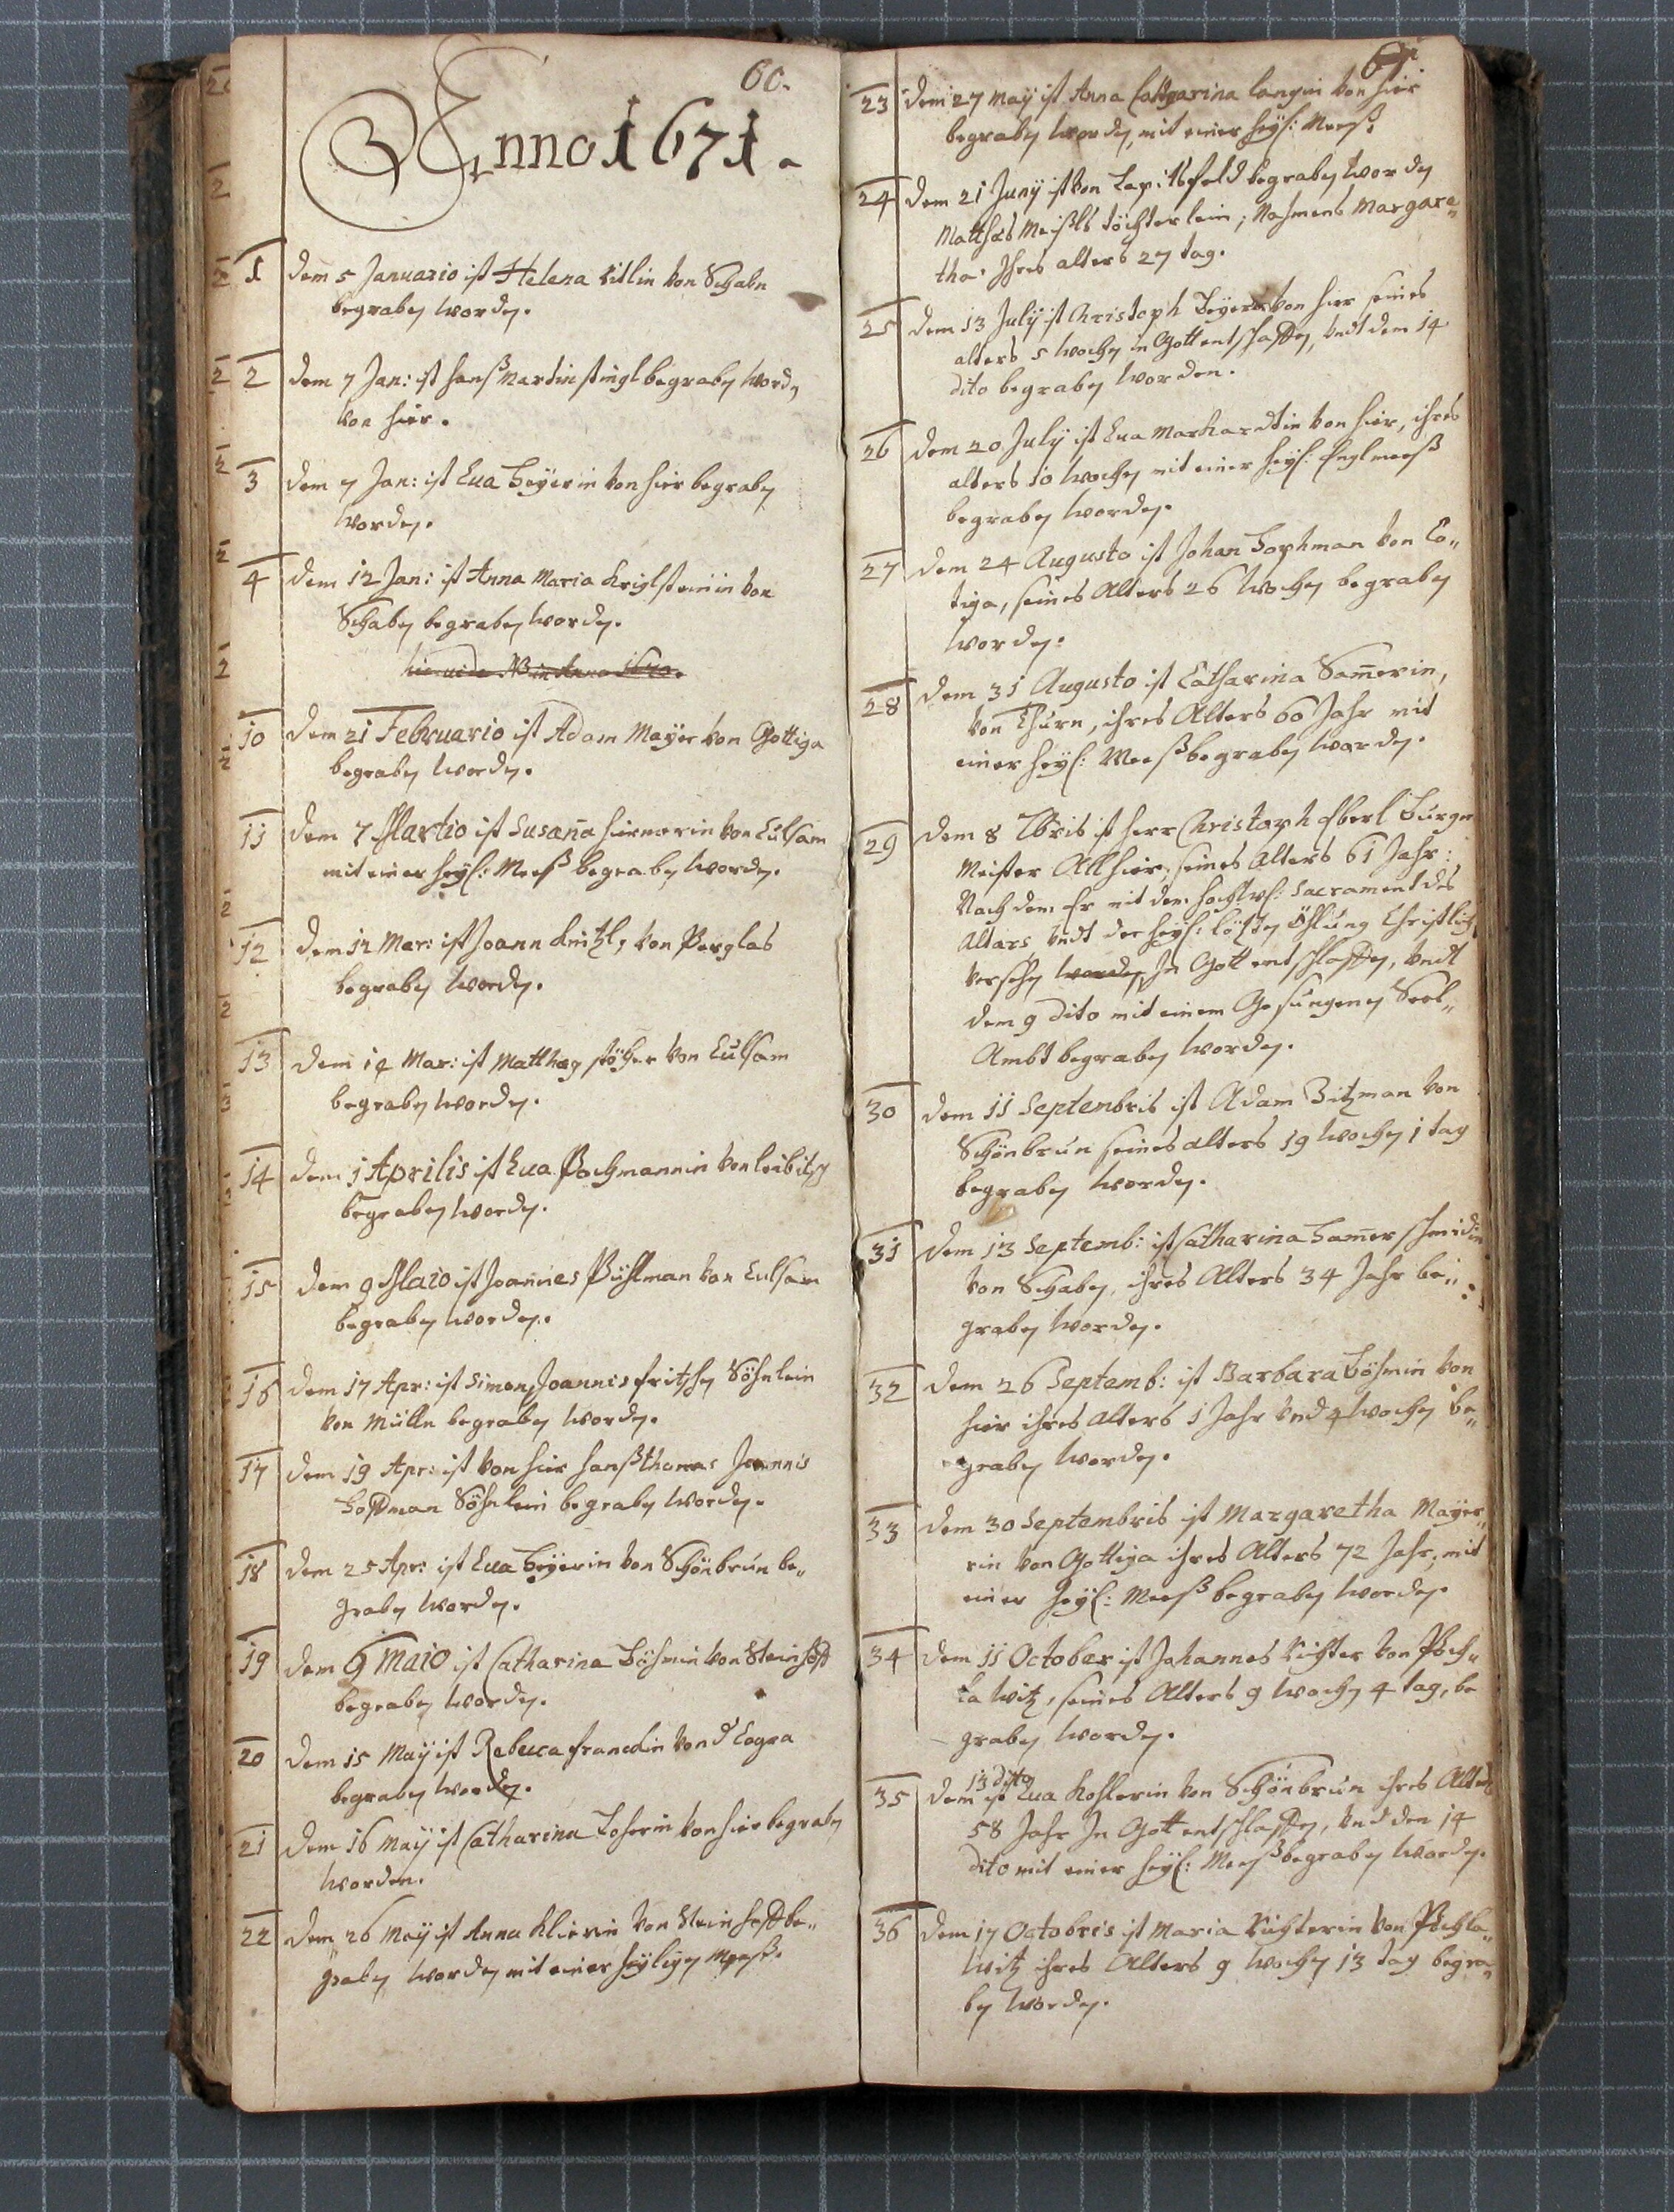 60.
Anno 1671.
1 dem 5 Januario ist Helena Vitlin von Schabn
begraben worden.
2 dem 7 Jan: ist Hanß Martin stingl begraben worden
von hier.
3 dem 7 Jan: ist Eua Beÿerin von hier begraben
worden.
4 dem 12 Jan: ist Anna Maria von
Schaben begraben worden.
10 dem 21 Februario ist Adam Maÿer von Gottiga
begraben worden.
11 dem 7 Martio ist Susaña von Culsam
mit einer heÿl: Meeß begraben worden.
12 dem 12 Mar: ist Joann von Perglas
begraben worden.
13 dem 14 Mar: ist Matthæy von Culsam
begraben worden.
14 dem 1 Aprilis ist Eua Pochmannin von leibitsch
begraben worden.
15 dem 9 Maio ist Joannes Pühlman von Culsam
begraben worden.
16 dem 17 Apr: ist Simon, Joannis fritschen Söhnlein
von Mülln begraben worden.
17 dem 19 Apr: ist von hier Hanß thomas Joannis
Hoffman Söhnlein begraben worden.
18 dem 25 Apr: ist Eua Beÿerin von Schönbrun be„
graben worden.
19 dem 9 Maio ist Catharina Böhmin von Steinhoff
begraben worden.
20 dem 15 Maÿ ist Rebecca franckin von Eegra
begraben worden.
21 dem 16 Maÿ ist Catharina Loherin von hier begraben
worden.
22 dem 26 Maÿ ist Anna Klierin von Steinhoff be„
graben worden mit einer heÿligen Meeß.
61
23 dem 27 Maÿ ist Anna Catharina langin von hier
begraben worden, mit einer heÿl: Meeß.
24 dem 21 Junÿ ist von Lapitsfeld begraben worden
Matthæs Meißls töchterlein, Nahmens Margare„
tha Ihres alters 27 tag.
25 dem 13 Julÿ ist Christoph Beÿer von hier seines
alters 5 wochen in Gott entschlaffen, vndt dem 14
dito begraben worden.
26 dem 20 Julÿ ist Eua Markhardtin von hier, ihres
alters 10 wochen mit einer heÿl: Englmeeß
begraben worden.
27 dem 24 Augusto ist Johan Hophman von Co„
tiga, seines Alters 26 wochen begraben
worden.
28 dem 31 Augusto ist Catharina Sam̃erin,
von Thurn, ihres Alters 60 Jahr mit
einer heÿl: Meeß begraben worden.
29 dem 8 7bris ist herr Christoph Eberl Burger
Meister Allhier, seines Alters 61 Jahr:
Nach dem Er mit dem hochw: Sacrament des
Altars, vndt der heÿl: lötzten Öhlung Christlich
versehen worden, In Gott entschlaffen, vndt
dem 9 dito mit einem Gesungenen Seel„
Ambt begraben worden.
30 dem 11 Septembris ist Adam Zitzman von
Schönbrun seines alters 19 wochen 1 tag
begraben worden.
31 dem 13 Septemb: ist Catharina Ham̃erschmidin
von Schaben, ihres Alters 34 Jahr be„
graben worden.
32 dem 26 Septemb: ist Barbara Böhmin von
hier ihres Alters 1 Jahr vnd 4 wochen be„
graben worden.
33 dem 30 Septembris ist Margaretha Maÿer„
rin von Gottiga ihres Alters 72 Jahr, mit
einer heÿl: Meeß begraben worden.
34 dem 11 October ist Johannes Richter von Poch„
lawitz, seines Alters 9 wochen 4 tag, be
graben worden.
35 dem 13 dito ist Eua Kohlerin von Schönbrun ihres Alters
58 Jahr In Gott entschlaffen, vnd den 14
dito mit einer heÿl: Meeß begraben worden.
36 dem 17 Octobris ist Maria Richterin von Pochla„
witz ihres Alters 9 wochen 13 tag begra„
ben worden.